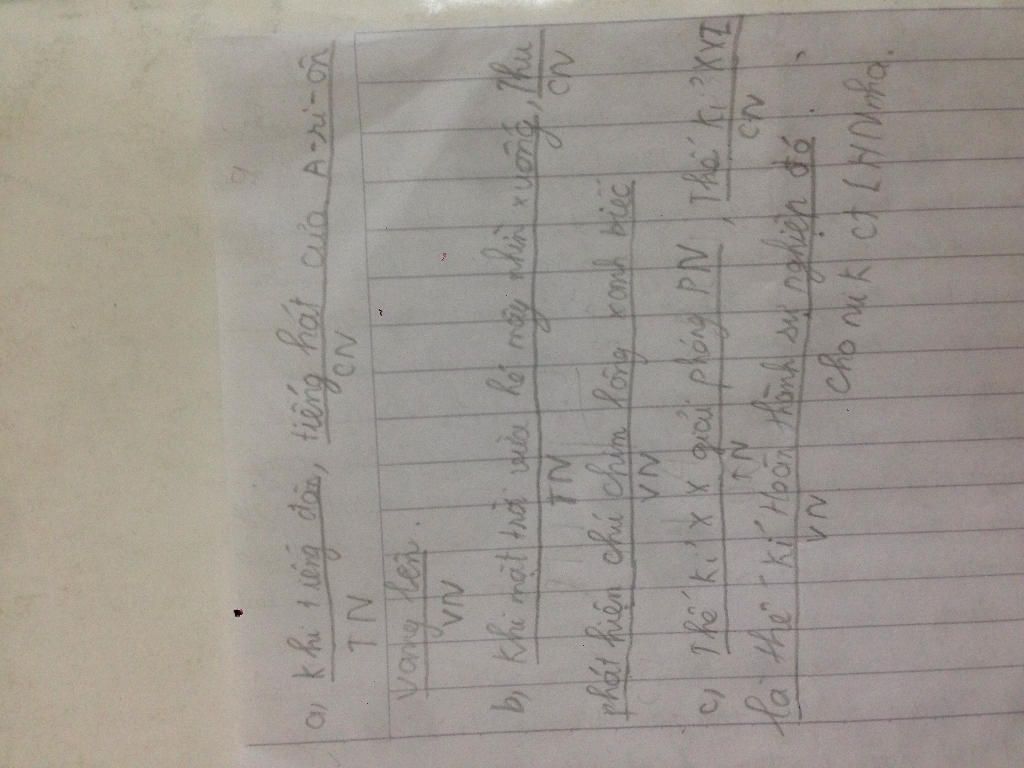 a, Khi tiếng đàn, tiếng hát của A-ri-ôn
TN CN
vang lên.
VN
b, Khi mặt trời vừa hé mây nhìn xuống, Thu
TN CN
phát hiện chú chim lông xanh biếc
VN
c, Thế kỉ XX giải phóng PN, Thế kỉ XXI
TN CN
là thế kỉ Hoàn thành sự nghiệp đó.
VN
cho nu k ct LHN nha.